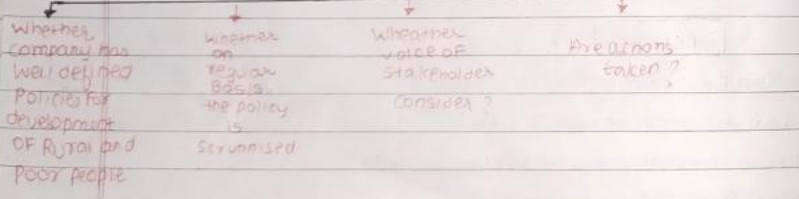 Whether
company has
well defined
Policies for
development
OF Rural and
Poor people
whether
on
regular
Basis
the policy
is
Scrutinised
Wheather
voice of
Stakeholder
Consider ?
Are actions
taken ?